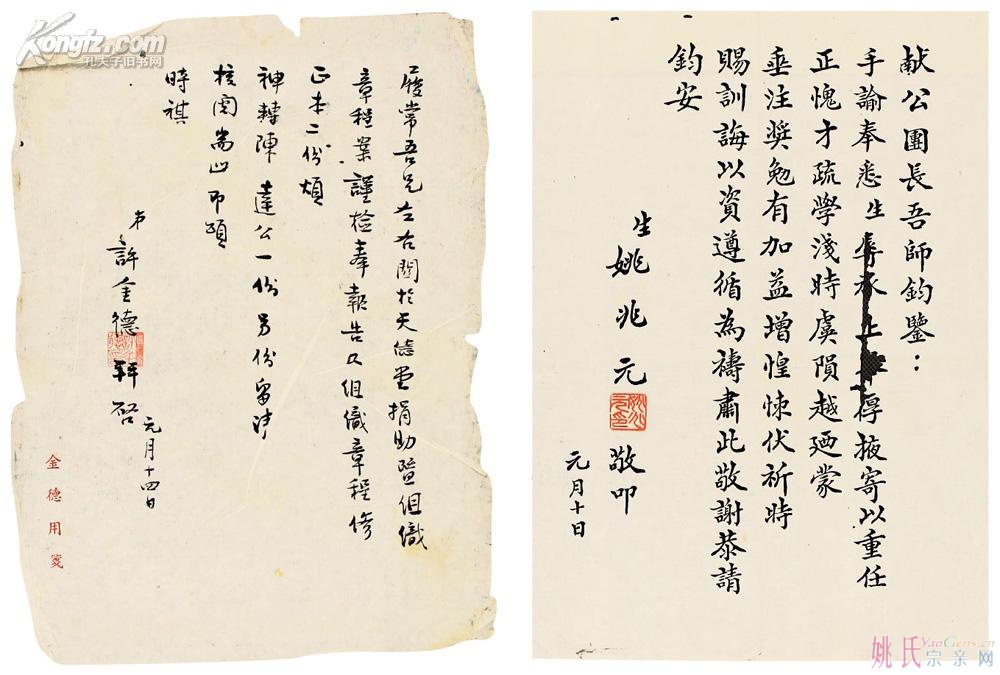 Kongfz.com
孔夫子旧书网
履常吾兄左右關於天德堂捐助暨組織
章程業謹檢奉報告及組織章程修
正本二份煩
神轉陳 達公一份另份留沖
核閱耑此 即頌
時祺
弟 許金德 拜啓
元月十四日
金德用箋
献公團長吾師鈞鑒：
手諭奉悉生辱承 上 俘掖寄以重任
正愧才疏學淺時虞隕越廼蒙
垂注奬勉有加益增惶悚伏祈時
賜訓誨以資遵循為禱肅此敬謝恭請
鈞安
生 姚兆元 敬叩
元月十日
YaoGens.cn
姚氏宗亲网